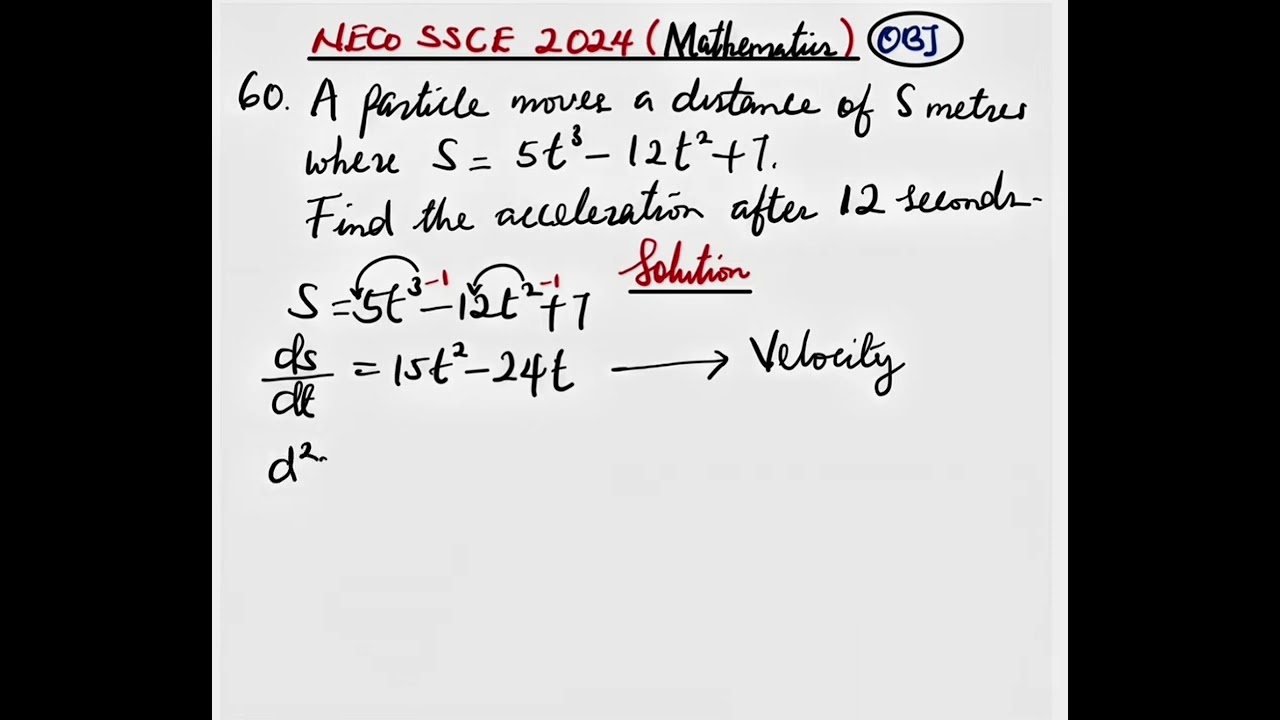 NECO SSCE 2024 (Mathematics) OBJ
60. A particle moves a distance of S metres
where S = 5t³ - 12t² + 7.
Find the acceleration after 12 seconds.
Solution
S = 5t³⁻¹ - 12t²⁻¹ + 7
ds/dt = 15t² - 24t → Velocity
d²